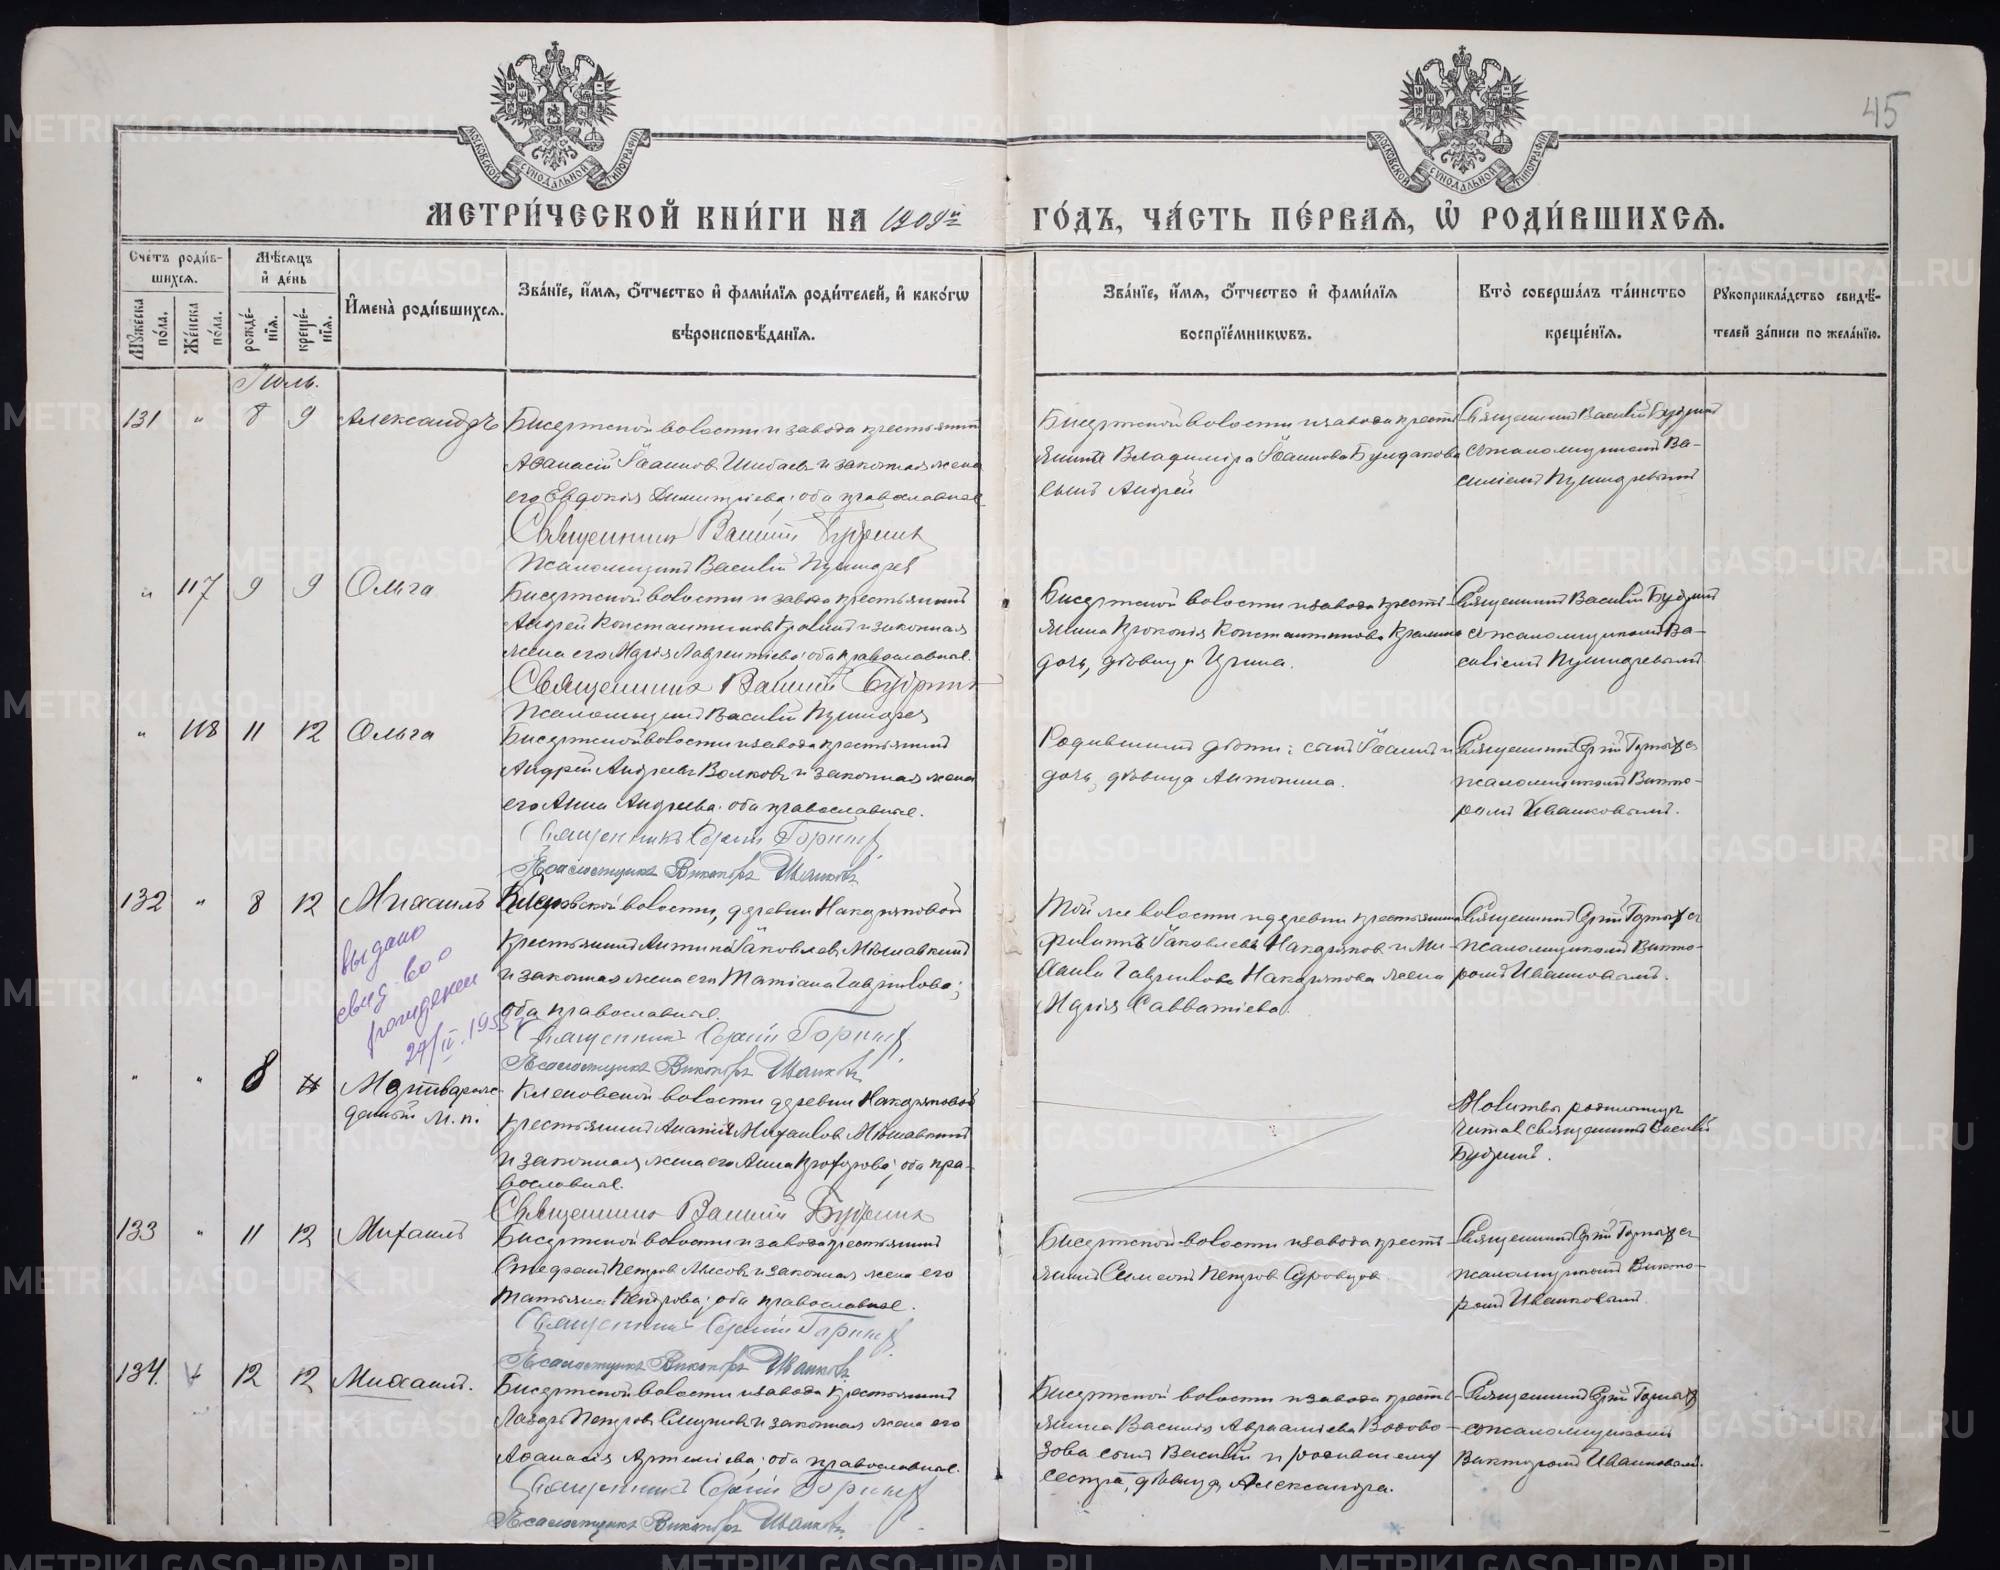 45
МОСКОВСКОЙ СѴНОДАЛЬНОЙ ТИПОГРАФІИ
МОСКОВСКОЙ СѴНОДАЛЬНОЙ ТИПОГРАФІИ
МЕТРИ́ЧЕСКОЙ КНИ́ГИ НА 1909й
ГО́ДЪ, ЧА́СТЬ ПЕ́РВАѦ, Ѡ҆ РОДИ́ВШИХСѦ.
Сче́тъ роди́в-
шихсѧ.
Мꙋжеска по́ла.
Же́нска по́ла.
Мѣ́сѧцъ и҆ де́нь
рожде́-
нїѧ.
креще́-
нїѧ.
И҆мена̀ роди́вшихсѧ.
Зва́нїе, и҆́мѧ, ѻ҆́тчество и҆ фами́лїѧ роди́телей, и҆ како́гѡ
вѣроисповѣ́данїѧ.
Зва́нїе, и҆́мѧ, ѻ҆́тчество и҆ фами́лїѧ
воспрїе́мникѡвъ.
Кто̀ соверша́лъ та́инство
креще́нїѧ.
Рꙋкоприкла́дство свидѣ́-
телей за́писи по жела́нїю.
Іюль.
131 " 8 9 Александръ
Бисертской волости и завода крестьянинъ
Аѳанасій Іоанновъ Шибаевъ и законная жена
его Евдокія Димитріева; оба православные
Священникъ Василій Будринъ
Псаломщикъ Василій Пушкаревъ
Бисертской волости и завода кресть-
янина Владиміра Іоаннова Булдакова
сынъ Андрей
Священникъ Василій Будринъ
съ псаломщикомъ Ва-
силіемъ Пушкаревымъ
" 117 9 9 Ольга
Бисертской волости и завода крестьянинъ
Андрей Константиновъ и законная
жена его Марія Лаврентіева; оба православные.
Священникъ Василій Будринъ
Псаломщикъ Василій Пушкаревъ
Бисертской волости и завода кресть-
янина Прокопія Константинова
дочь, дѣвица Ирина.
Священникъ Василій Будринъ
съ псаломщикомъ Ва-
силіемъ Пушкаревымъ
" 118 11 12 Ольга
Бисертской волости и завода крестьянинъ
Андрей Андреевъ Волковъ и законная жена
его Анна Андреева; оба православные.
Священникъ Сергій
Псаломщикъ Викторъ Ивановъ
Родившимъ дѣти: сынъ Іоаннъ и
дочь, дѣвица Антонина.
Священникъ Сергій съ
псаломщикомъ Викто-
ромъ
132 " 8 12 Михаилъ
Кленовской волости, деревни Накоряковой
крестьянинъ Антипа Іаковлевъ
и законная жена его Татіана Гавріилова;
оба православные.
Священникъ Сергій
Псаломщикъ Викторъ
Той же волости и деревни крестьянинъ
Филиппъ Іаковлевъ Накоряковъ и Ми-
хаила Гавріилова Накорякова жена
Марія Савватіева.
Священникъ Сергій съ
псаломщикомъ Викто-
ромъ
выдано
свид-во о
рождении
27/II. 195
" " 8 " Мертворож-
денный м.п.
Кленовской волости деревни Накоряковой
крестьянинъ Михаиловъ
и законная жена его Анна; оба пра-
вославные.
Священникъ Василій Будринъ
Молитвы родильницѣ
читалъ священникъ Василій
Будринъ.
133 " 11 12 Михаилъ
Бисертской волости и завода крестьянинъ
Стефанъ Петровъ и законная жена его
Татьяна; оба православные.
Священникъ Сергій
Псаломщикъ Викторъ
Бисертской волости и завода кресть-
янинъ Симеонъ Петровъ Суровцовъ.
Священникъ Сергій съ
псаломщикомъ Викто-
ромъ
134. 12 12 Михаилъ.
Бисертской волости и завода крестьянинъ
Лазарь Петровъ и законная жена его
Аѳанасія Артеміева; оба православные.
Священникъ Сергій
Псаломщикъ Викторъ
Бисертской волости и завода кресть-
янина Василія Авраміева Водово-
зова сынъ Василій и родившему
сестра, дѣвица Александра.
Священникъ Сергій
съ псаломщикомъ
Викторомъ
METRIKI.GASO-URAL.RU